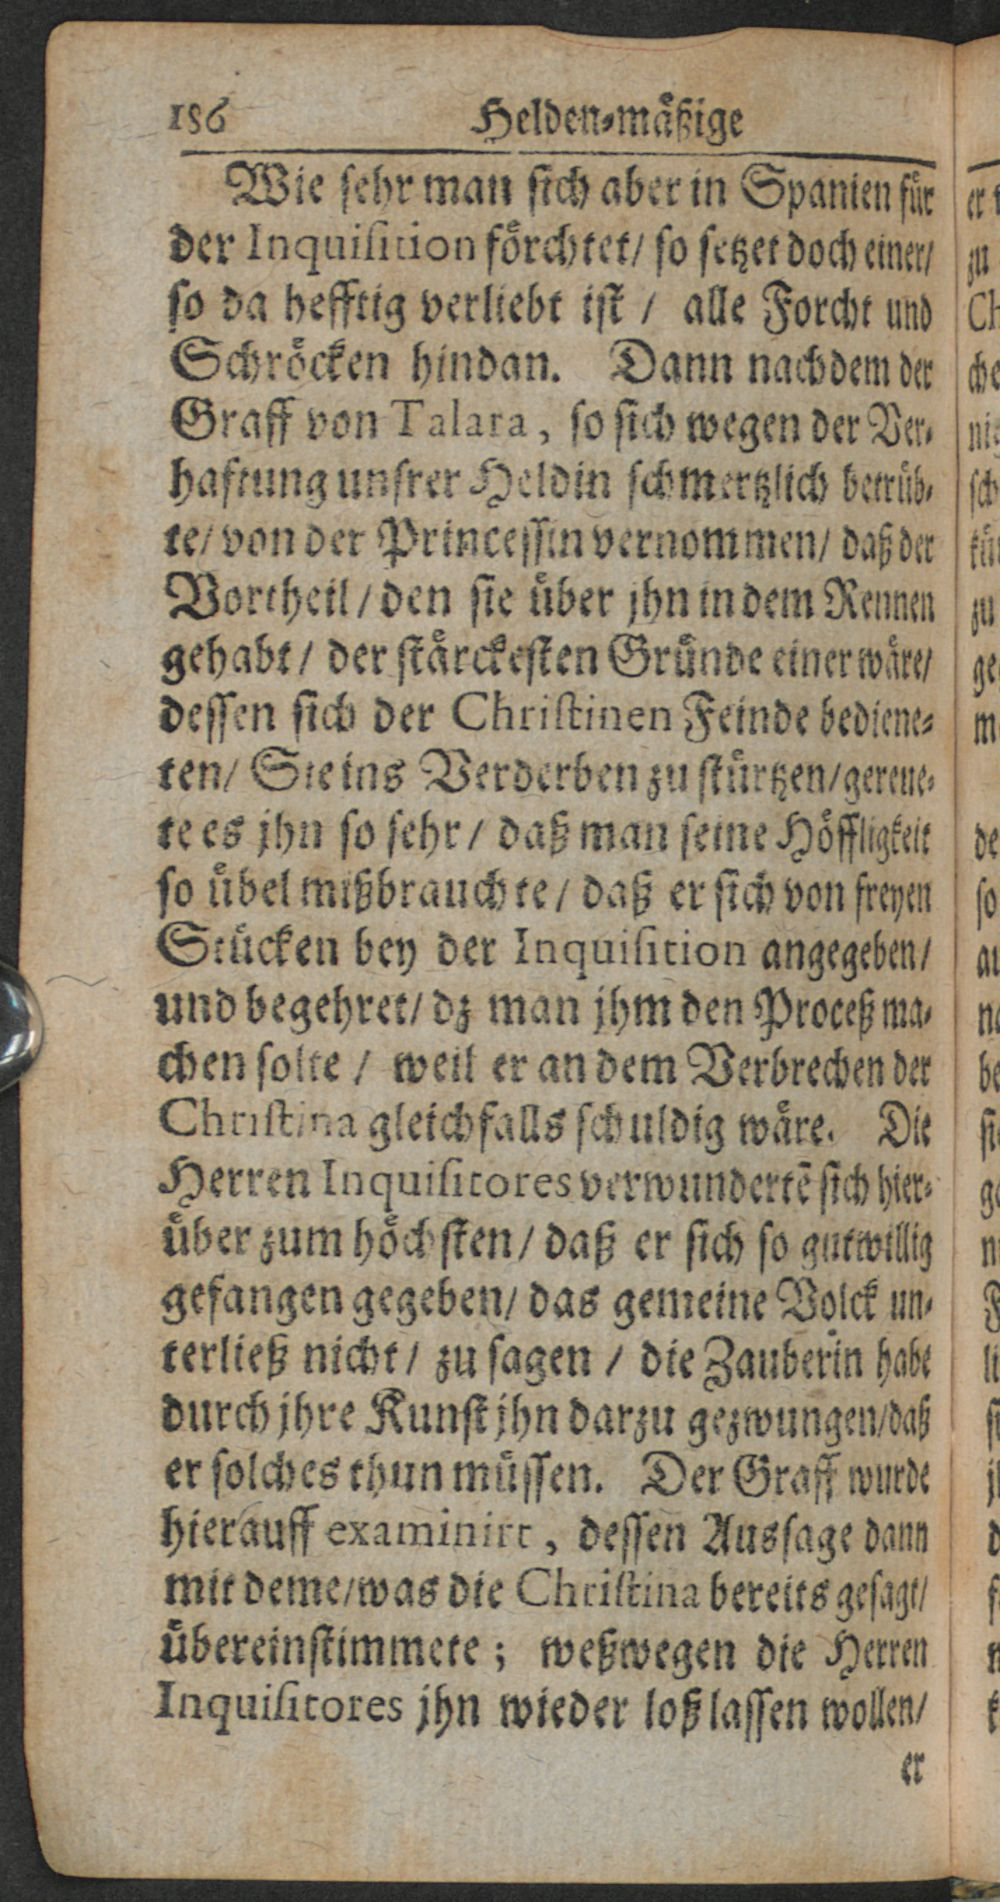 186 Helden-mäßige
Wie sehr man sich aber in Spanien für
der Inquisition förchtet/ so setzet doch einer/
so da hefftig verliebt ist / alle Forcht und
Schröcken hindan. Dann nachdem der
Graff von Talara, so sich wegen der Ver-
haftung unsrer Heldin schmertzlich betrüb-
te/ von der Princessin vernommen/ daß der
Vortheil / den sie über jhn in dem Rennen
gehabt / der stärckesten Gründe einer wäre/
dessen sich der Christinen Feinde bediene-
ten/ Sie ins Verderben zu stürtzen/ gereue-
te es jhn so sehr / daß man seine Höffligkeit
so übel mißbrauchte / daß er sich von freyen
Stücken bey der Inquisition angegeben/
und begehret/ dz man jhm den Proceß ma-
chen solte / weil er an dem Verbrechen der
Christina gleichfalls schuldig wäre. Die
Herren Inquisitores verwundertē sich hier-
über zum höchsten / daß er sich so gutwillig
gefangen gegeben/ das gemeine Volck un-
terließ nicht / zu sagen / die Zauberin habe
durch jhre Kunst jhn darzu gezwungen/daß
er solches thun müssen. Der Graff wurde
hierauff examinirt, dessen Aussage dann
mit deme/was die Christina bereits gesagt/
übereinstimmete ; weßwegen die Herren
Inquisitores jhn wieder loß lassen wollen/
er